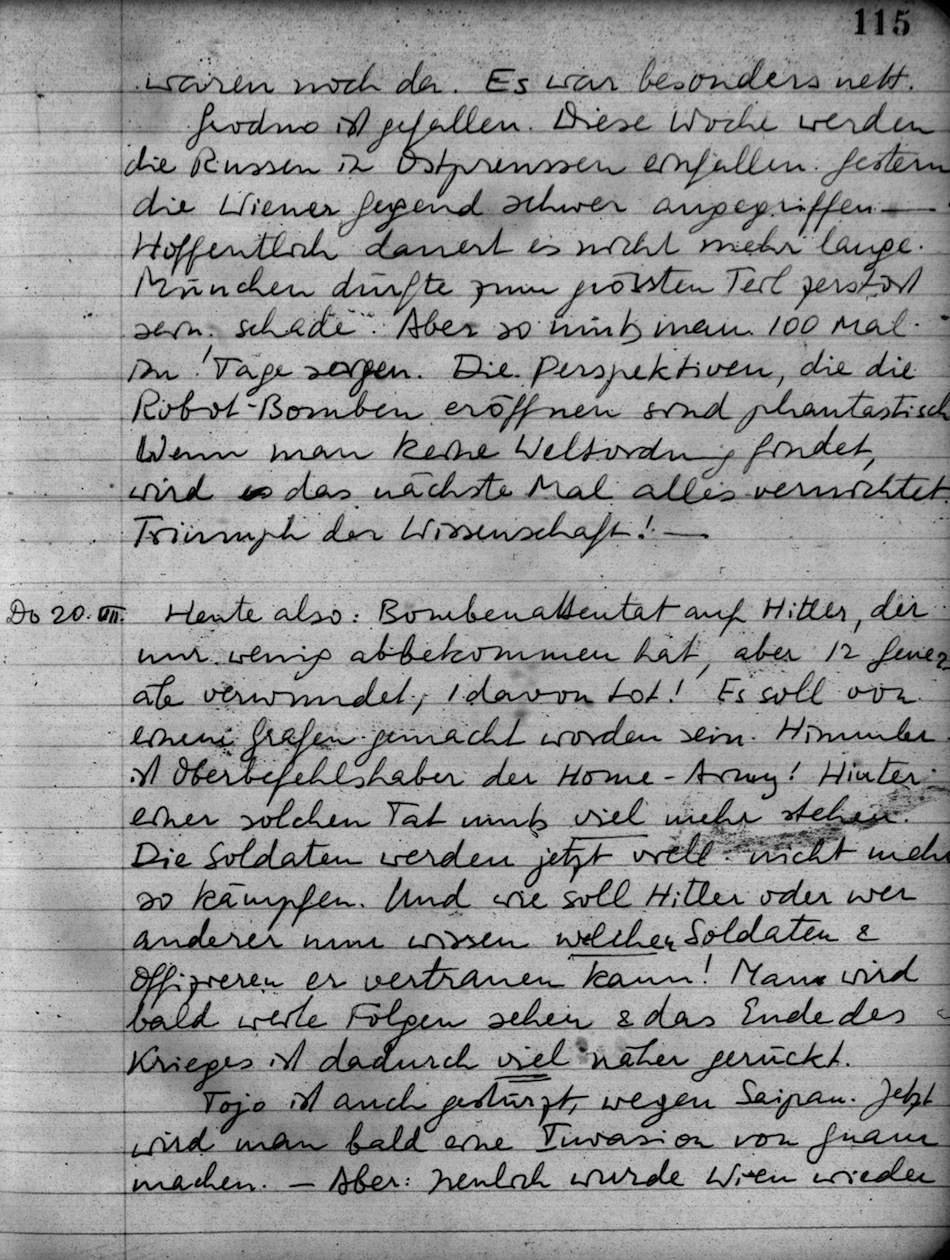 115
waren noch da. Es war besonders nett.
Grodno ist gefallen. Diese Woche werden
die Russen in Ostpreussen einfallen. Gestern
die Wiener Gegend schwer angegriffen —
Hoffentlich dauert es nicht mehr lange.
München dürfte zum grössten Teil zerstört
sein. schade. Aber so muß man 100 Mal
im Tage sagen. Die Perspektiven, die die
Robot-Bomben eröffnen sind phantastisch
Wenn man keine Weltordnung findet,
wird das nächste Mal alles vernichtet.
Triumph der Wissenschaft! —
Do 20. VII. Heute also: Bombenattentat auf Hitler, der
nur wenig abbekommen hat, aber 12 Gener
ale verwundet, 1 davon tot! Es soll von
einem Grafen gemacht worden sein. Himmler
ist Oberbefehlshaber der Home-Army! Hinter
einer solchen Tat muß viel mehr stehen.
Die Soldaten werden jetzt viell. nicht mehr
so kämpfen. Und wie soll Hitler oder wer
anderer nun wissen welchen Soldaten &
Offizieren er vertrauen kann! Man wird
bald weite Folgen sehen & das Ende des
Krieges ist dadurch viel näher gerückt.
Tojo ist auch gestürzt, wegen Saipan. Jetzt
wird man bald eine Invasion von Guam
machen. — Aber: neulich wurde Wien wieder